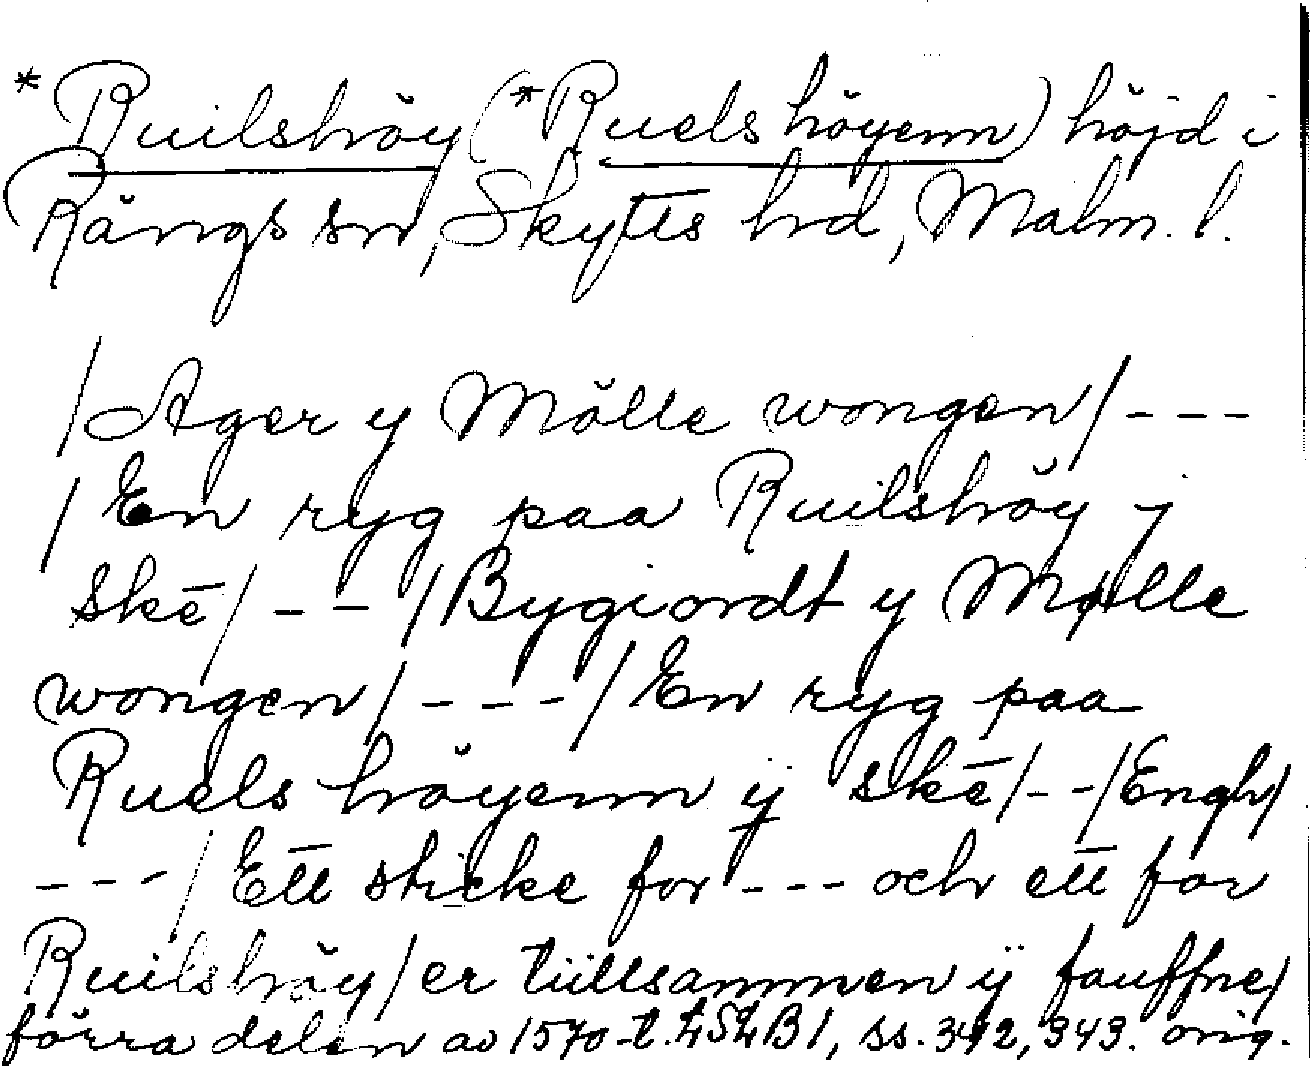 *Ruilshöy (*Ruels höyenn) höjd i
Rängs sn, Skytts hd, Malm. l.
/Ager y Mölle wongen/---
/En ryg paa Ruilshöy j
ske/--/Bygiordt y Mølle
wongen/---/En ryg paa
Ruels höyenn ÿ ske/--/Engh/
---/Ett sticke for---och ett for
Ruilshöy/er tüllsammen ÿ fauffne/
förra delen av 1570-t. ss. 342, 343. orig.